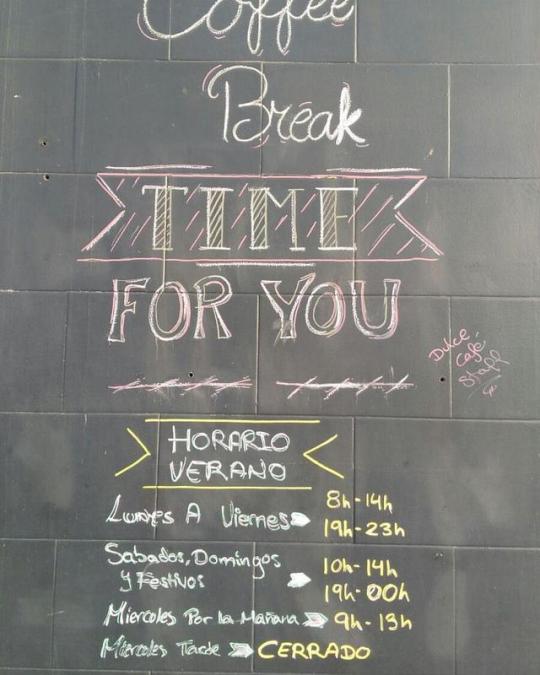 Coffee
Break
TIME
FOR YOU
Dulce
Café
Staff
HORARIO
VERANO
Lunes A Viernes 8h-14h
19h-23h
Sabados, Domingos
y Festivos 10h-14h
19h-00h
Miercoles Por la Mañana 9h-13h
Miercoles Tarde CERRADO